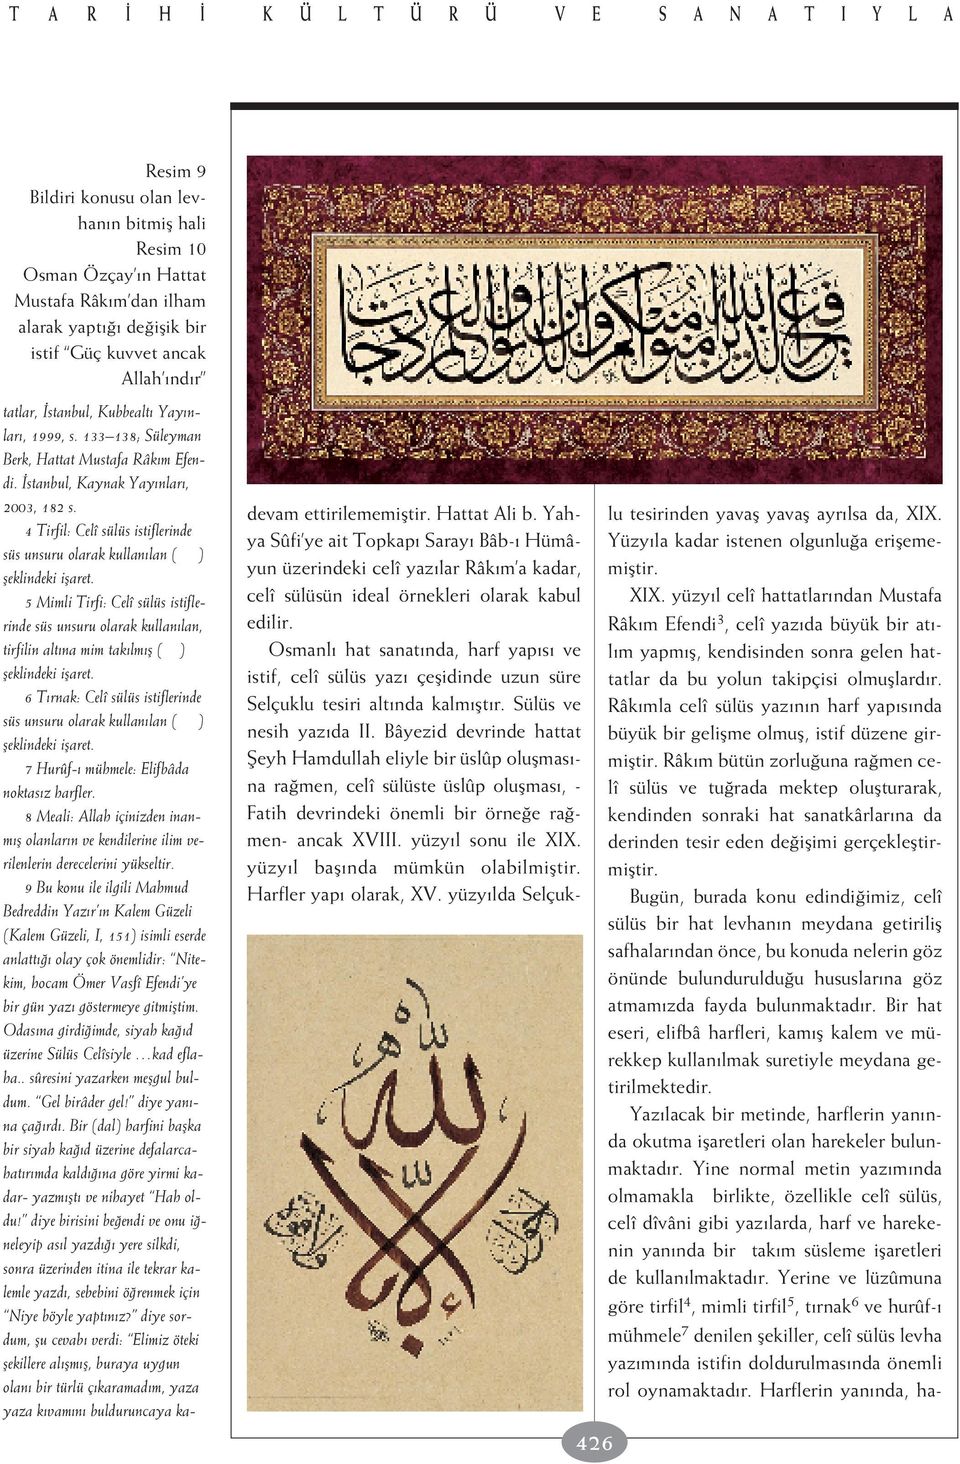 TARİHİ KÜLTÜRÜ VE SANATIYLA
Resim 9
Bildiri konusu olan lev-
hanın bitmiş hali
Resim 10
Osman Özçay'ın Hattat
Mustafa Râkım'dan ilham
alarak yaptığı değişik bir
istif "Güç kuvvet ancak
Allah'ındır"
tatlar, İstanbul, Kubbealtı Yayın-
ları, 1999, s. 133–138; Süleyman
Berk, Hattat Mustafa Râkım Efen-
di. İstanbul, Kaynak Yayınları,
2003, 182 s.
4 Tirfil: Celî sülüs istiflerinde
süs unsuru olarak kullanılan ( )
şeklindeki işaret.
5 Mimli Tirfi: Celî sülüs istifle-
rinde süs unsuru olarak kullanılan,
tirfilin altına mim takılmış ( )
şeklindeki işaret.
6 Tırnak: Celî sülüs istiflerinde
süs unsuru olarak kullanılan ( )
şeklindeki işaret.
7 Hurûf-ı mühmele: Elifbâda
noktasız harfler.
8 Meali: Allah içinizden inan-
mış olanların ve kendilerine ilim ve-
rilenlerin derecelerini yükseltir.
9 Bu konu ile ilgili Mahmud
Bedreddin Yazır'ın Kalem Güzeli
(Kalem Güzeli, I, 151) isimli eserde
anlattığı olay çok önemlidir: "Nite-
kim, hocam Ömer Vasfî Efendi'ye
bir gün yazı göstermeye gitmiştim.
Odasına girdiğimde, siyah kağıd
üzerine Sülüs Celîsiyle …kad efla-
ha.. sûresini yazarken meşgul bul-
dum. "Gel birâder gel!" diye yanı-
na çağırdı. Bir (dal) harfini başka
bir siyah kağıd üzerine defalarca-
hatırımda kaldığına göre yirmi ka-
dar- yazmıştı ve nihayet "Hah ol-
du!" diye birisini beğendi ve onu iğ-
neleyip asıl yazdığı yere silkdi,
sonra üzerinden itina ile tekrar ka-
lemle yazdı, sebebini öğrenmek için
"Niye böyle yaptınız?" diye sor-
dum, şu cevabı verdi: "Elimiz öteki
şekillere alışmış, buraya uygun
olanı bir türlü çıkaramadım, yaza
yaza kıvamını bulduruncaya ka-
يرفع الله الذين آمنوا منكم والذين أوتوا العلم درجات
devam ettirilememiştir. Hattat Ali b. Yah-
ya Sûfi'ye ait Topkapı Sarayı Bâb-ı Hümâ-
yun üzerindeki celî yazılar Râkım'a kadar,
celî sülüsün ideal örnekleri olarak kabul
edilir.
Osmanlı hat sanatında, harf yapısı ve
istif, celî sülüs yazı çeşidinde uzun süre
Selçuklu tesiri altında kalmıştır. Sülüs ve
nesih yazıda II. Bâyezid devrinde hattat
Şeyh Hamdullah eliyle bir üslûp oluşması-
na rağmen, celî sülüste üslûp oluşması, -
Fatih devrindeki önemli bir örneğe rağ-
men- ancak XVIII. yüzyıl sonu ile XIX.
yüzyıl başında mümkün olabilmiştir.
Harfler yapı olarak, XV. yüzyılda Selçuk-
lu tesirinden yavaş yavaş ayrılsa da, XIX.
Yüzyıla kadar istenen olgunluğa erişeme-
miştir.
XIX. yüzyıl celî hattatlarından Mustafa
Râkım Efendi3, celî yazıda büyük bir atı-
lım yapmış, kendisinden sonra gelen hat-
tatlar da bu yolun takipçisi olmuşlardır.
Râkımla celî sülüs yazının harf yapısında
büyük bir gelişme olmuş, istif düzene gir-
miştir. Râkım bütün zorluğuna rağmen ce-
lî sülüs ve tuğrada mektep oluşturarak,
kendinden sonraki hat sanatkârlarına da
derinden tesir eden değişimi gerçekleştir-
miştir.
Bugün, burada konu edindiğimiz, celî
sülüs bir hat levhanın meydana getiriliş
safhalarından önce, bu konuda nelerin göz
önünde bulundurulduğu hususlarına göz
atmamızda fayda bulunmaktadır. Bir hat
eseri, elifbâ harfleri, kamış kalem ve mü-
rekkep kullanılmak suretiyle meydana ge-
tirilmektedir.
Yazılacak bir metinde, harflerin yanın-
da okutma işaretleri olan harekeler bulun-
maktadır. Yine normal metin yazımında
olmamakla birlikte, özellikle celî sülüs,
celî dîvâni gibi yazılarda, harf ve hareke-
nin yanında bir takım süsleme işaretleri
de kullanılmaktadır. Yerine ve lüzûmuna
göre tirfil4, mimli tirfil5, tırnak6 ve hurûf-ı
mühmele7 denilen şekiller, celî sülüs levha
yazımında istifin doldurulmasında önemli
rol oynamaktadır. Harflerin yanında, ha-
426